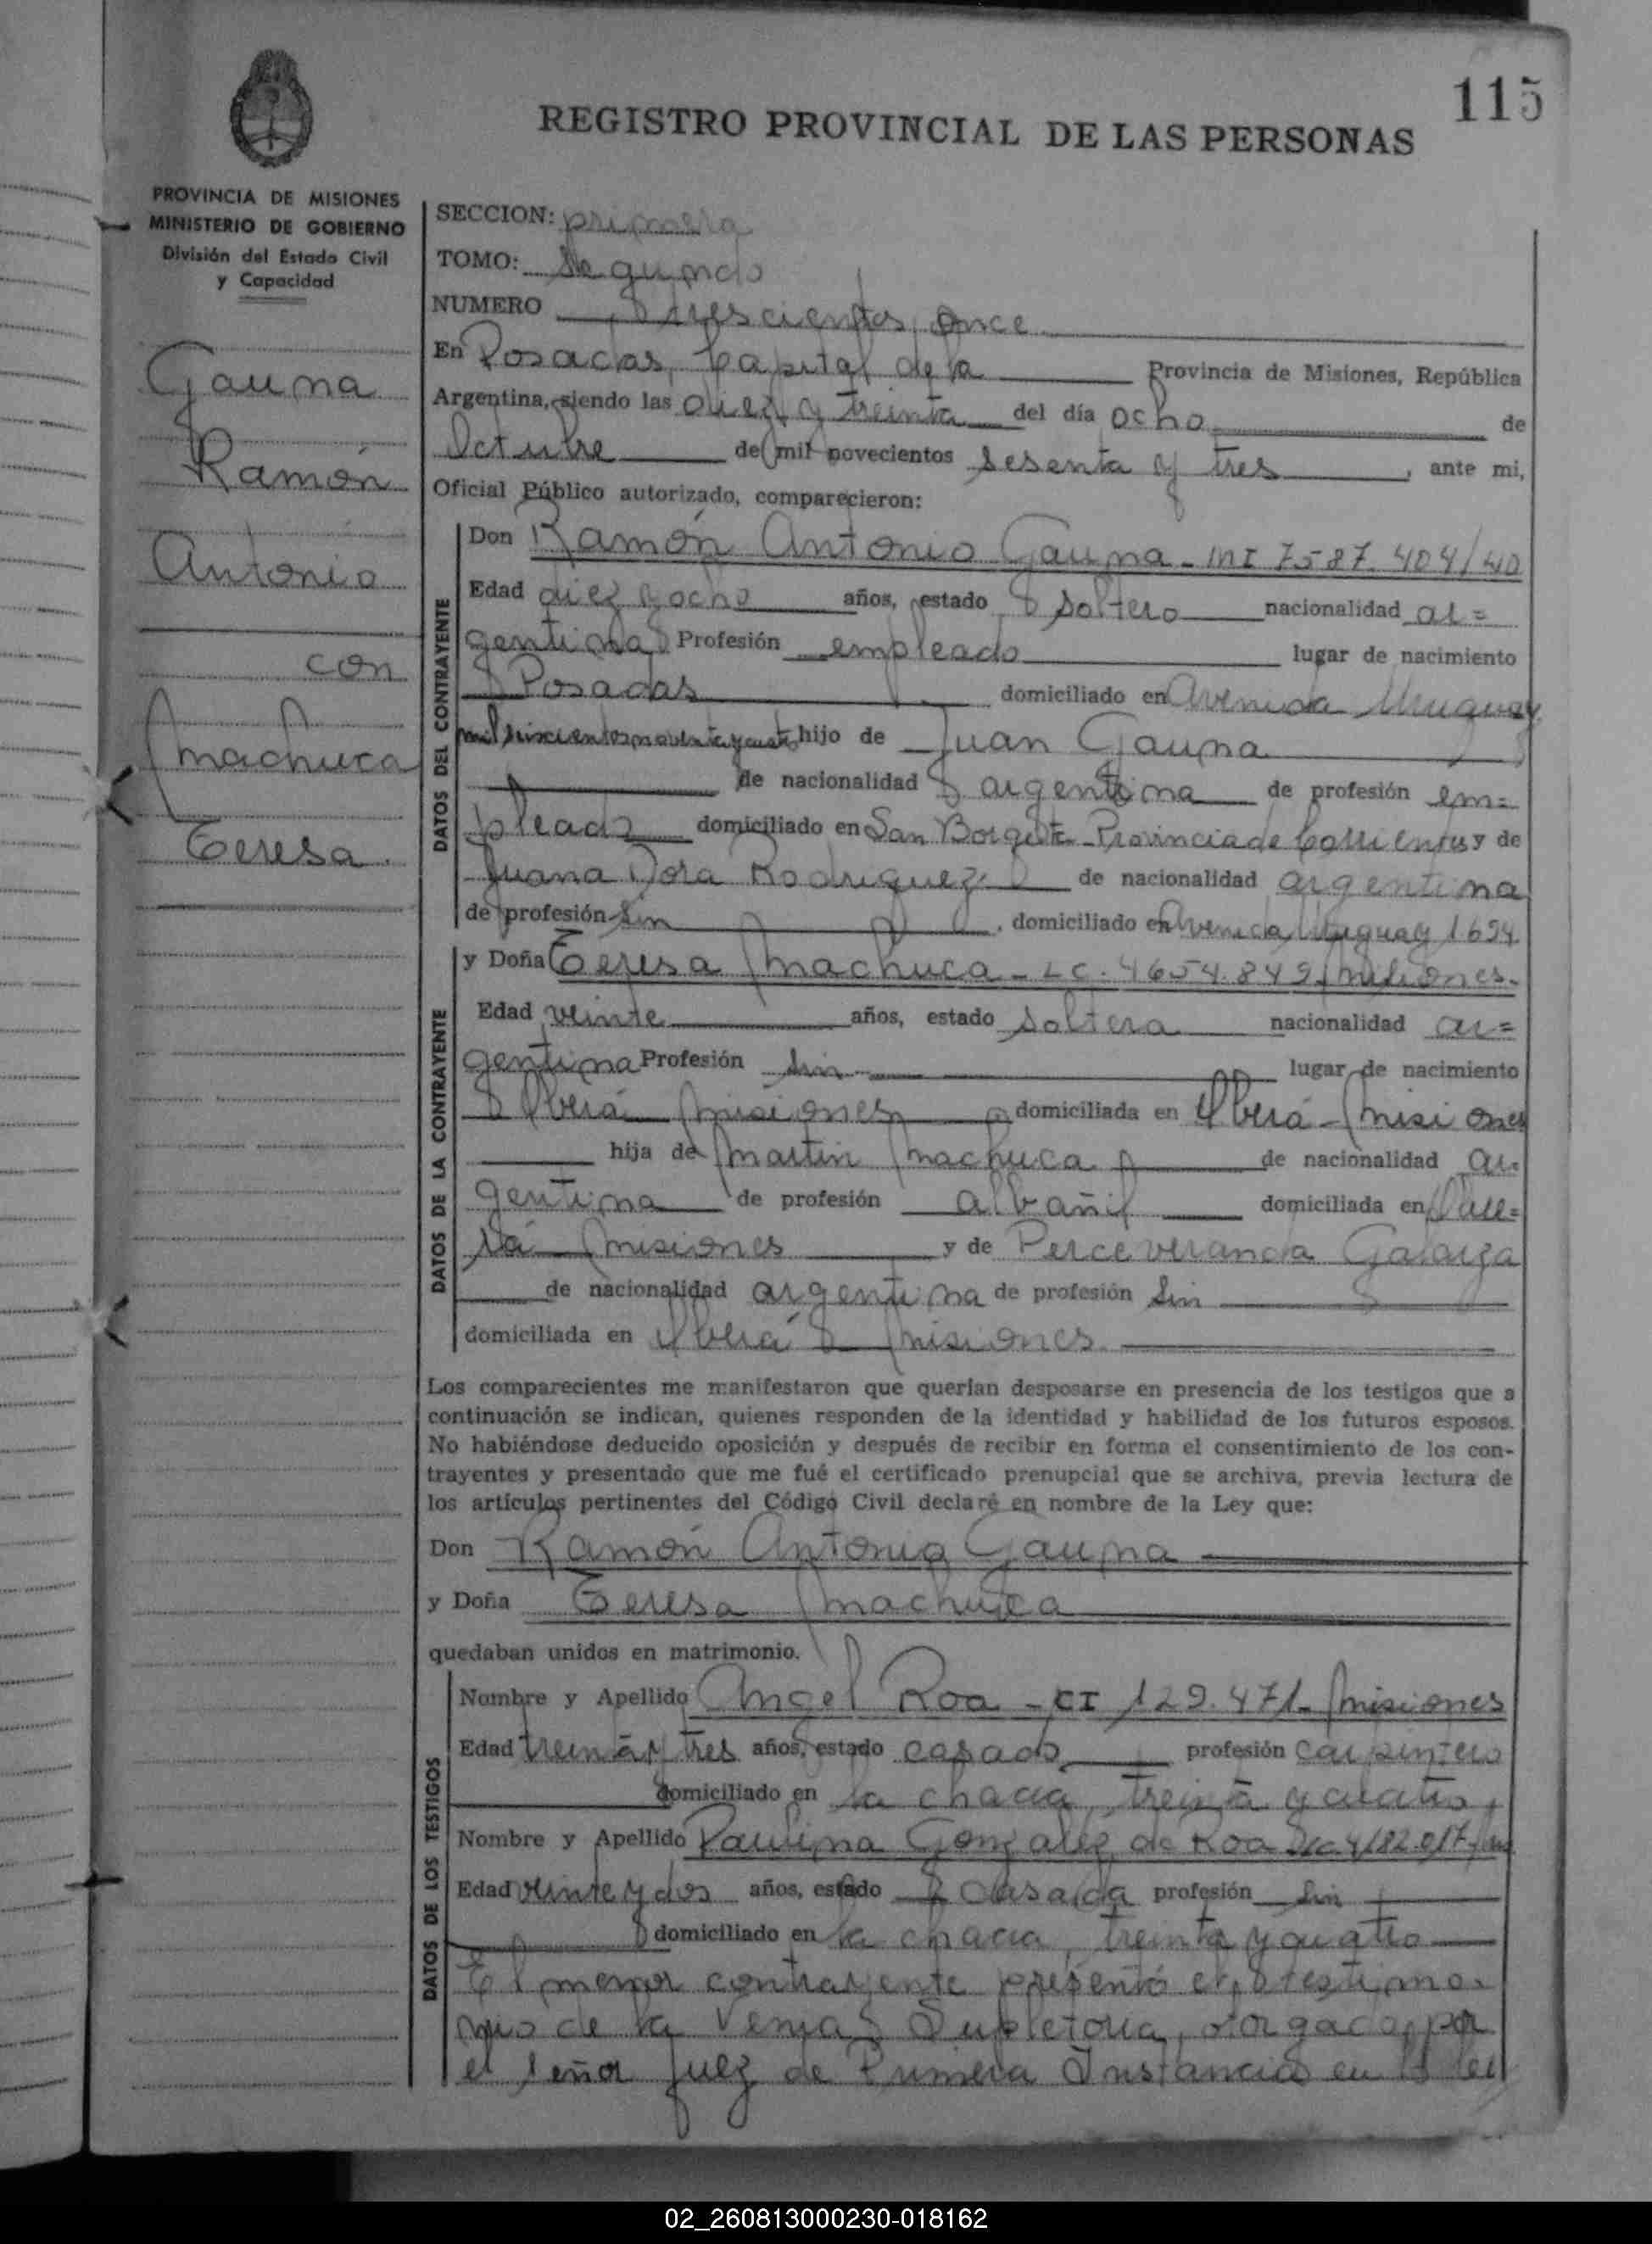 115
REGISTRO PROVINCIAL DE LAS PERSONAS
PROVINCIA DE MISIONES
MINISTERIO DE GOBIERNO
División del Estado Civil
y Capacidad
Gauna
Ramón
Antonio
con
Machuca
Teresa.
SECCION: primera
TOMO: Segundo
NUMERO Trescientos once
En Posadas, Capital de la Provincia de Misiones, República
Argentina, siendo las diez y treinta del día ocho de
Octubre de mil novecientos sesenta y tres, ante mi,
Oficial Público autorizado, comparecieron:
DATOS DEL CONTRAYENTE
Don Ramón Antonio Gauna - MI 7587.404/40
Edad diez y ocho años, estado soltero nacionalidad ar=
gentina Profesión empleado lugar de nacimiento
Posadas domiciliado en Avenida Uruguay
mil seiscientos noventa y cuatro hijo de Juan Gauna
de nacionalidad argentina de profesión em=
pleado domiciliado en San Borgita - Provincia de Corrientes y de
Juana Dora Rodriguez de nacionalidad argentina
de profesión sin, domiciliado en Avenida Uruguay 1694
DATOS DE LA CONTRAYENTE
y Doña Teresa Machuca - LC. 4654.849 Misiones-
Edad veinte años, estado soltera nacionalidad ar=
gentina Profesión sin lugar de nacimiento
Yberá Misiones domiciliada en Yberá - Misiones
hija de Martin Machuca de nacionalidad ar-
gentina de profesión albañil domiciliada en
Misiones y de Perceveranda Galarza
de nacionalidad argentina de profesión sin
domiciliada en Yberá Misiones.
Los comparecientes me manifestaron que querían desposarse en presencia de los testigos que a
continuación se indican, quienes responden de la identidad y habilidad de los futuros esposos.
No habiéndose deducido oposición y después de recibir en forma el consentimiento de los con-
trayentes y presentado que me fué el certificado prenupcial que se archiva, previa lectura de
los artículos pertinentes del Código Civil declaré en nombre de la Ley que:
Don Ramón Antonio Gauna
y Doña Teresa Machuca
quedaban unidos en matrimonio.
DATOS DE LOS TESTIGOS
Nombre y Apellido Angel Roa - CI 129.471- Misiones
Edad treinta y tres años, estado casado profesión carpintero
domiciliado en la chacra treinta y cuatro,
Nombre y Apellido Paulina Gonzalez de Roa
Edad veinte y dos años, estado casada profesión sin
domiciliado en la chacra, treinta y cuatro
El menor contrayente presentó el testimo-
nio de la Venia Supletoria, otorgada por
el señor Juez de Primera Instancia en lo
02_260813000230-018162